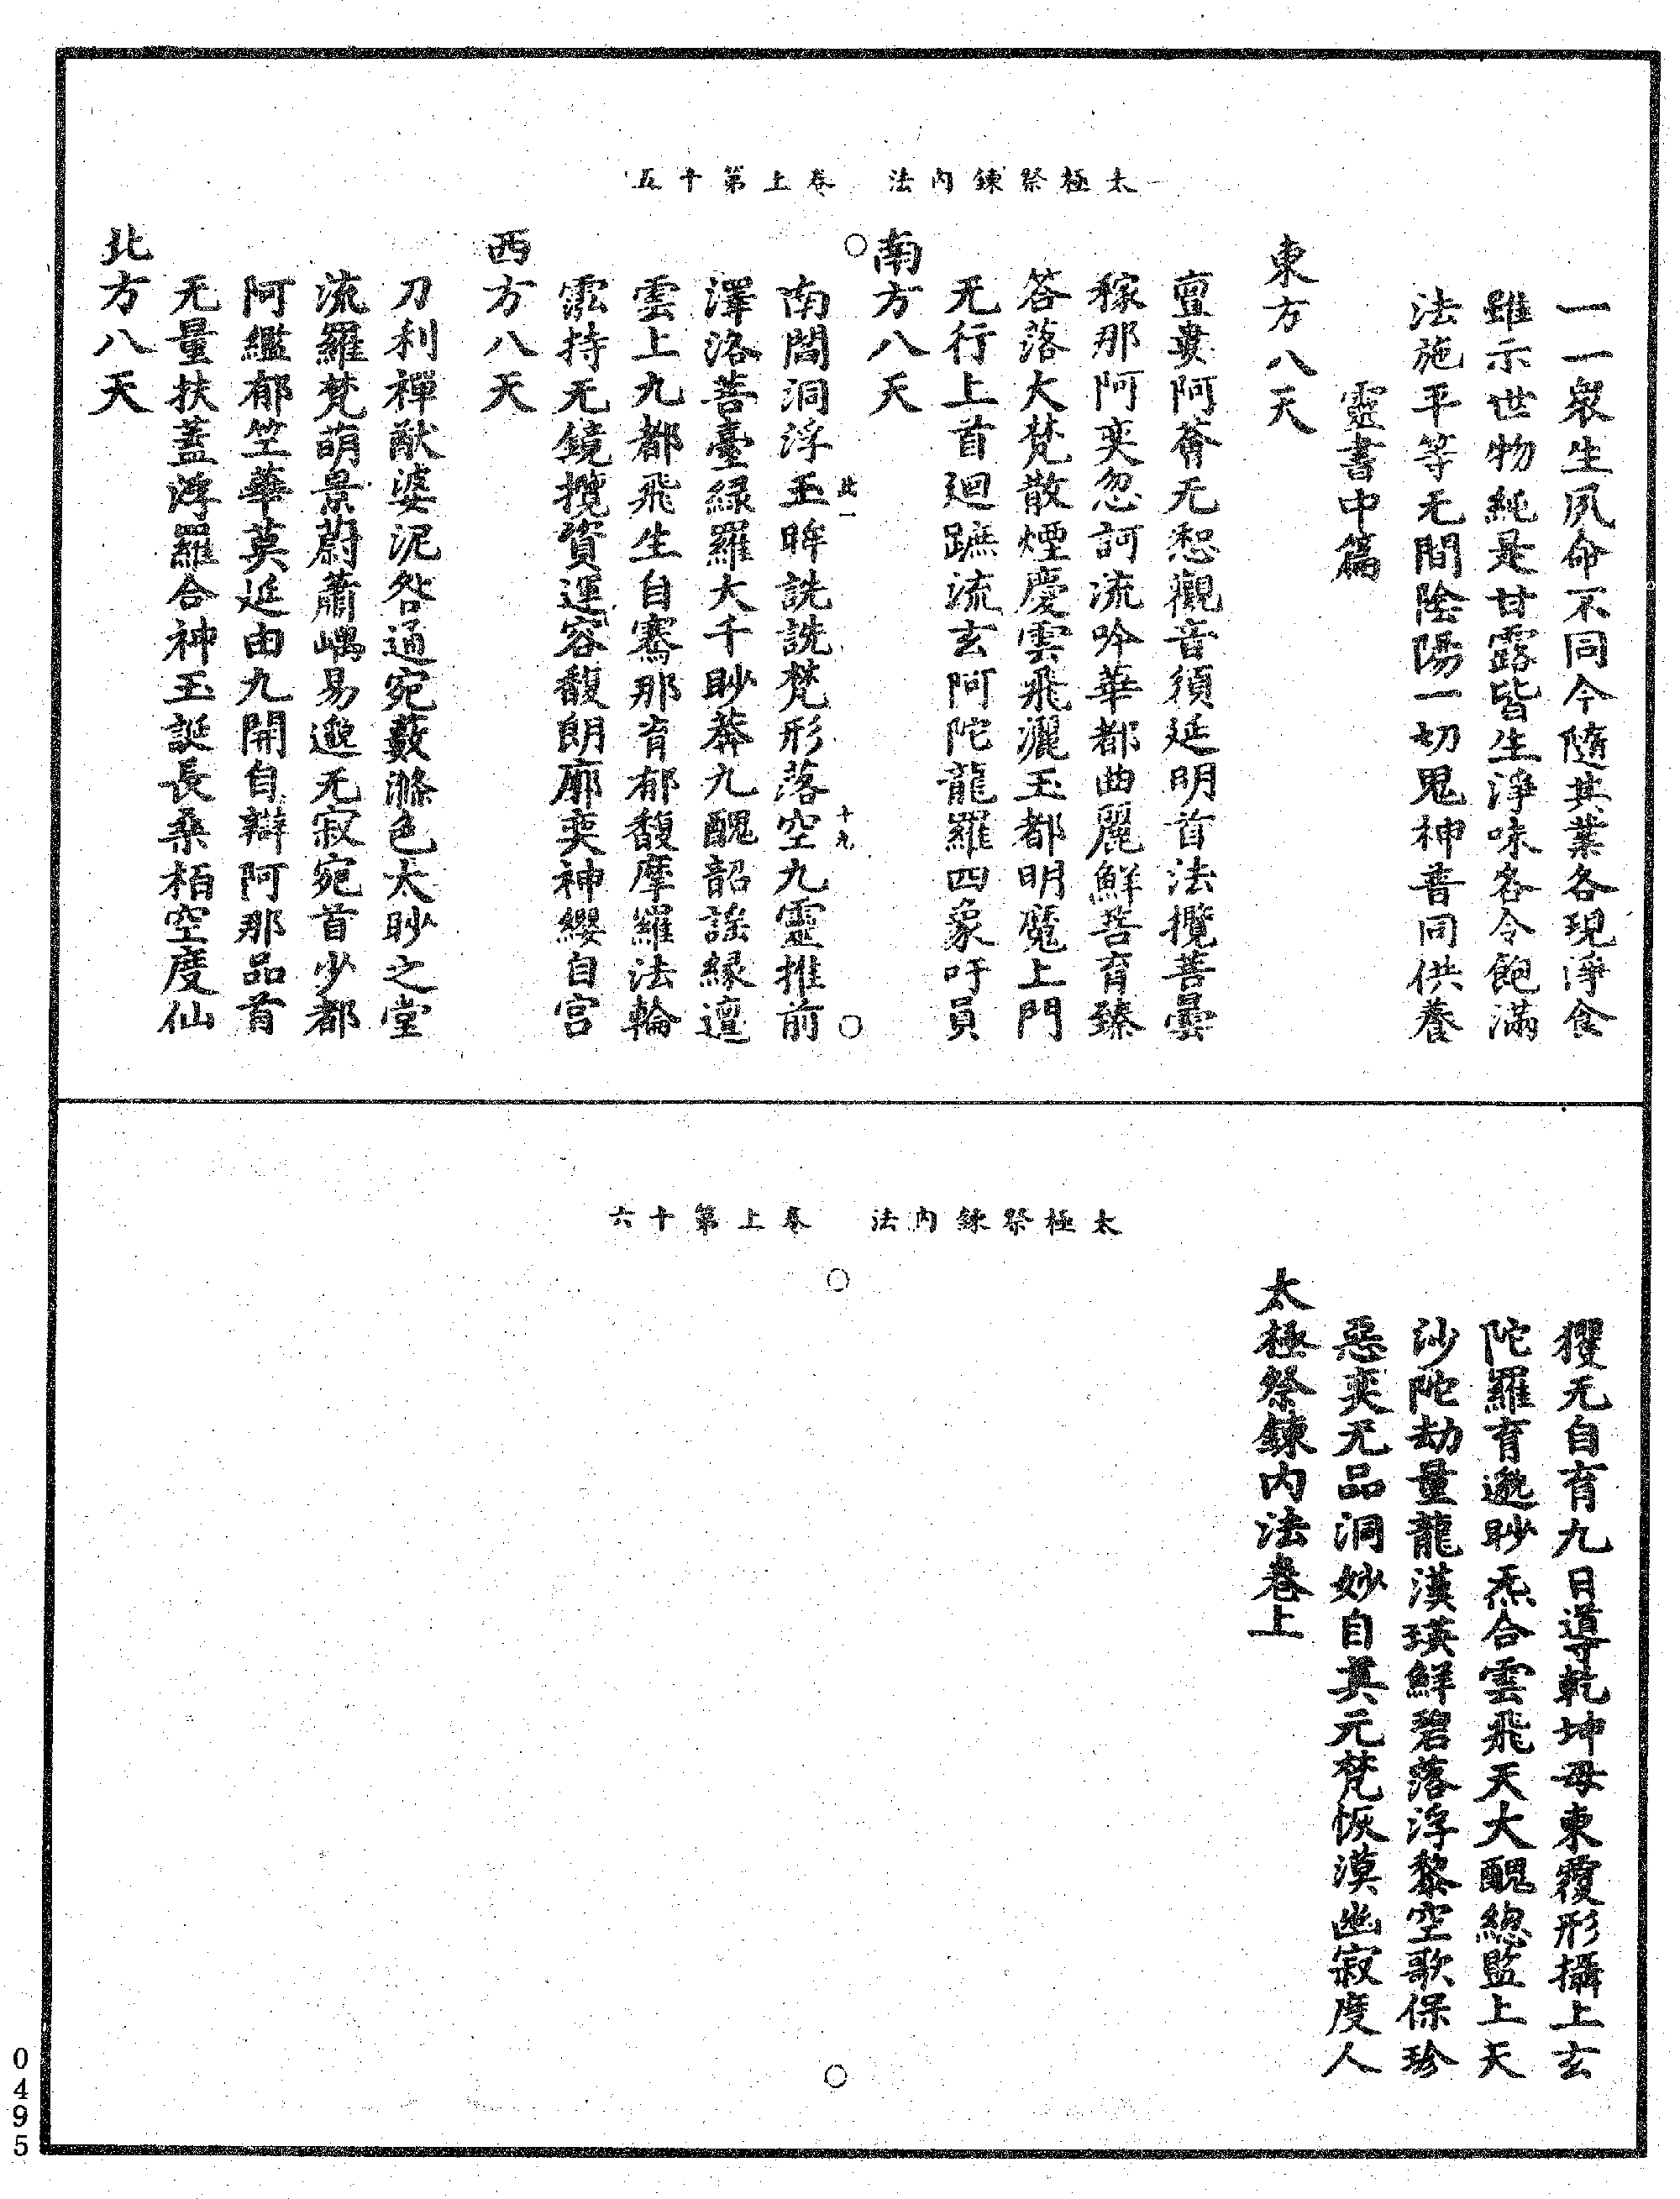 太極祭鍊內法　卷上第十五
一一衆生夙命不同今隨其業各現淨食
雖示世物純是甘露皆生淨味各令飽滿
法施平等无間陰陽一切鬼神普同供養
靈書中篇
東方八天
亶婁阿薈无惒觀音須延明首法攬菩曇
稼那阿奕忽訶流吟華都曲麗鮮菩育臻
答落大梵散煙慶雲飛灑玉都明魔上門
无行上首迴蹠流玄阿陀龍羅四象吁員
南方八天
此一　十九
南閻洞浮玉眸詵詵梵形落空九靈推前
澤洛菩臺緑羅大千眇莽九醜韶謠緣邅
雲上九都飛生自騫那育郁馥摩羅法輪
霐持无鏡攬資運容馥朗廓奕神纓自宫
西方八天
刀利禪猷婆泥咎通宛藪滌色太眇之堂
流羅梵萌景蔚蕭嵎易邈无寂宛首少都
阿繿郁竺華莫延由九開自辯阿那品首
无量扶蓋浮羅合神玉誕長桑栢空度仙
北方八天
太極祭鍊內法　卷上第十六
玃无自育九日導乾坤母東覆形攝上玄
陀羅育邈眇炁合雲飛天大醜總監上天
沙陀劫量龍漢瑛鮮碧落浮黎空歌保珍
惡奕无品洞妙自真元梵恢漠幽寂度人
太極祭鍊内法卷上
0495